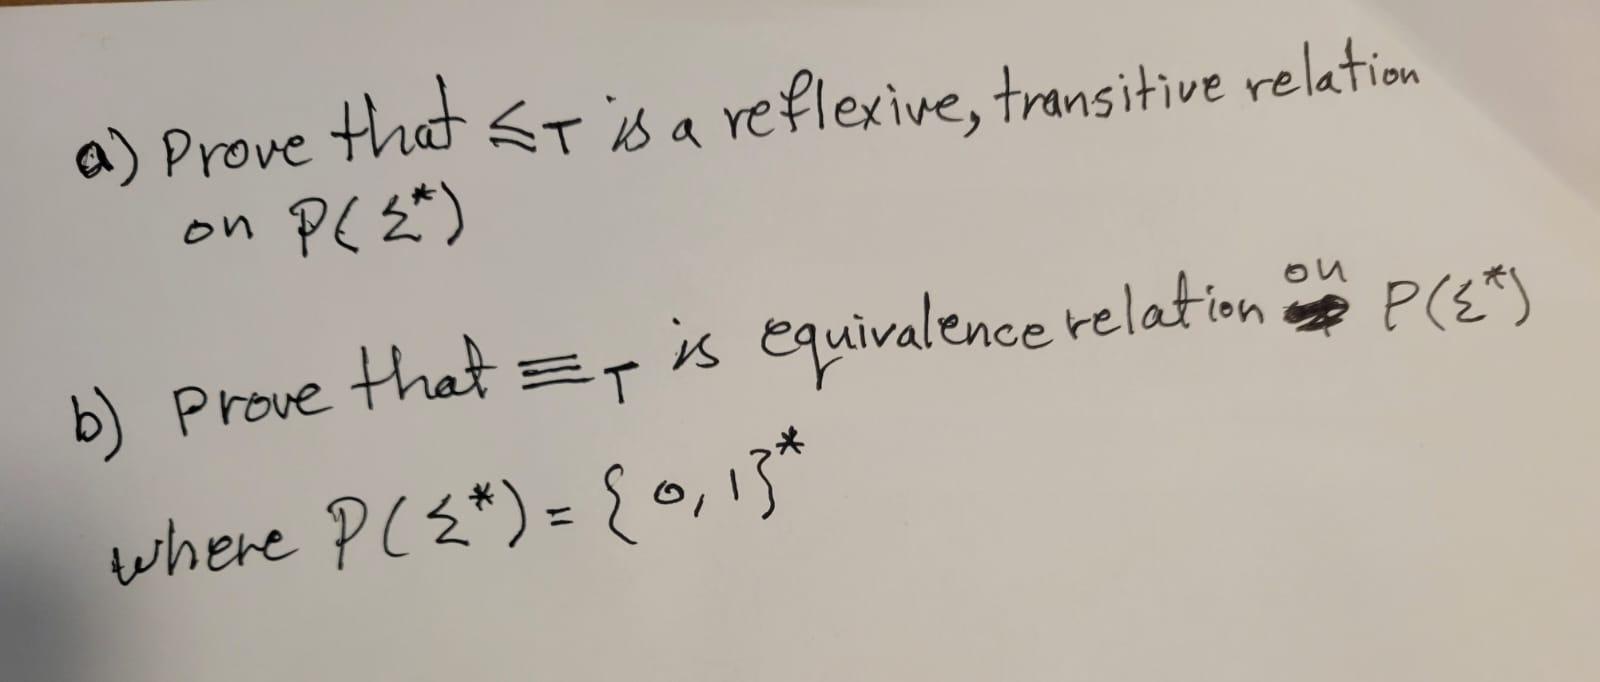 a) Prove that ≤T is a reflexive, transitive relation
on P(Σ*)
b) Prove that ≡T is equivalence relation on P(Σ*)
where P(Σ*) = {0,1}*